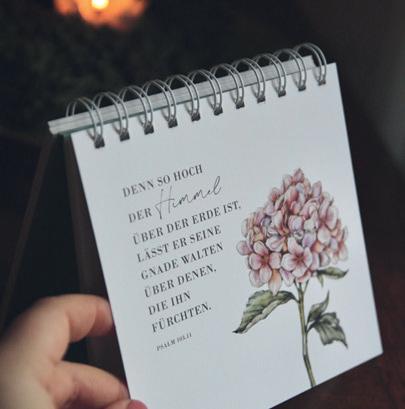 DENN SO HOCH
DER Himmel
ÜBER DER ERDE IST,
LÄSST ER SEINE
GNADE WALTEN
ÜBER DENEN,
DIE IHN
FÜRCHTEN.
PSALM 103,11